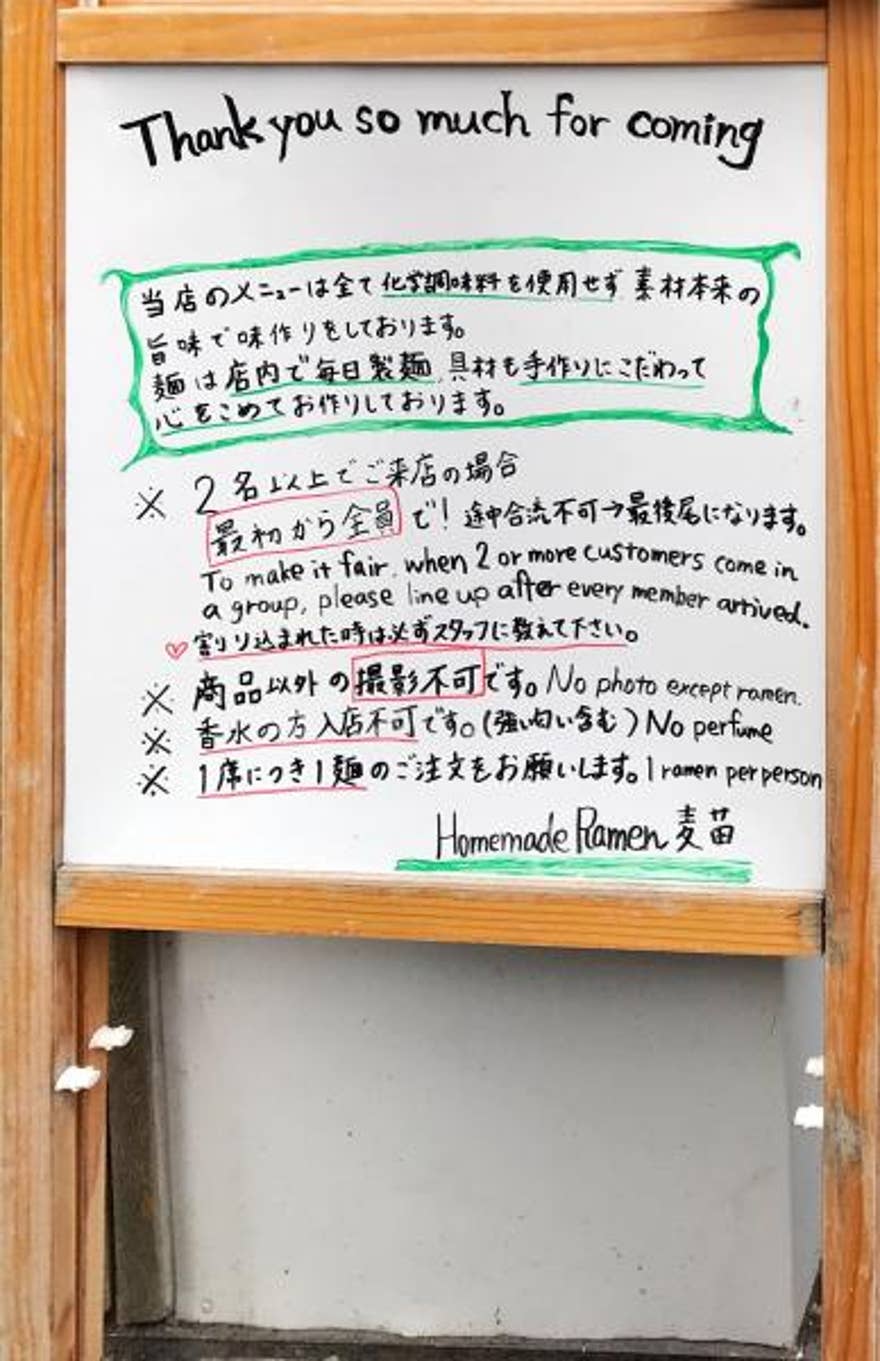 Thank you so much for coming
当店のメニューは全て化学調味料を使用せず 素材本来の
旨味で味作りをしております。
麺は店内で毎日製麺、具材も手作りにこだわって
心をこめてお作りしております。
※ 2名以上でご来店の場合
最初から全員で! 途中合流不可→最後尾になります。
To make it fair, when 2 or more customers come in
a group, please line up after every member arrived.
♡割り込まれた時は必ずスタッフに教えて下さい。
※ 商品以外の撮影不可です。No photo except ramen.
※ 香水の方入店不可です。(強い匂い含む)No perfume
※ 1席につき1麺のご注文をお願いします。1 ramen per person
Homemade Ramen 麦苗